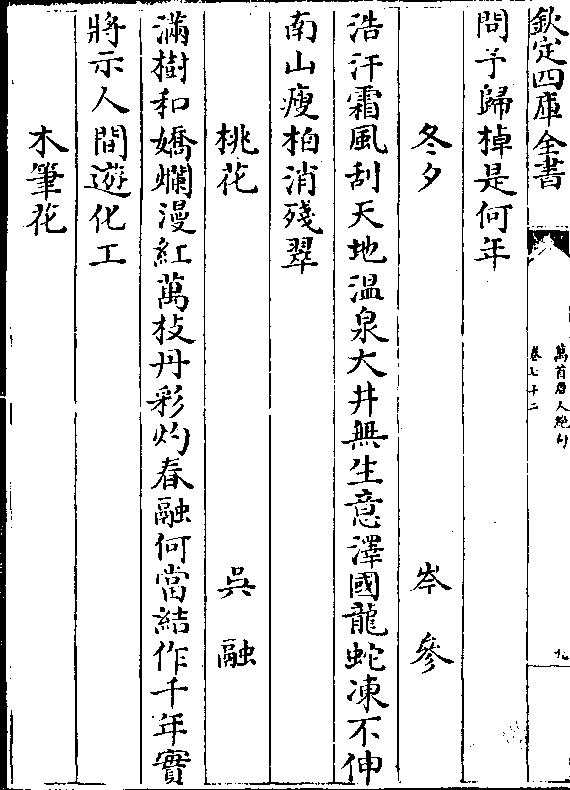 欽定四庫全書
萬首唐人絶句
卷七十二
九
問予歸棹是何年
冬夕　岑參
浩汗霜風刮天地温泉大井無生意澤國龍蛇凍不伸
南山瘦柏消殘翠
桃花　吳融
滿樹和嬌爛漫紅萬枝丹彩灼春融何當結作千年實
將示人間遊化工
木筆花